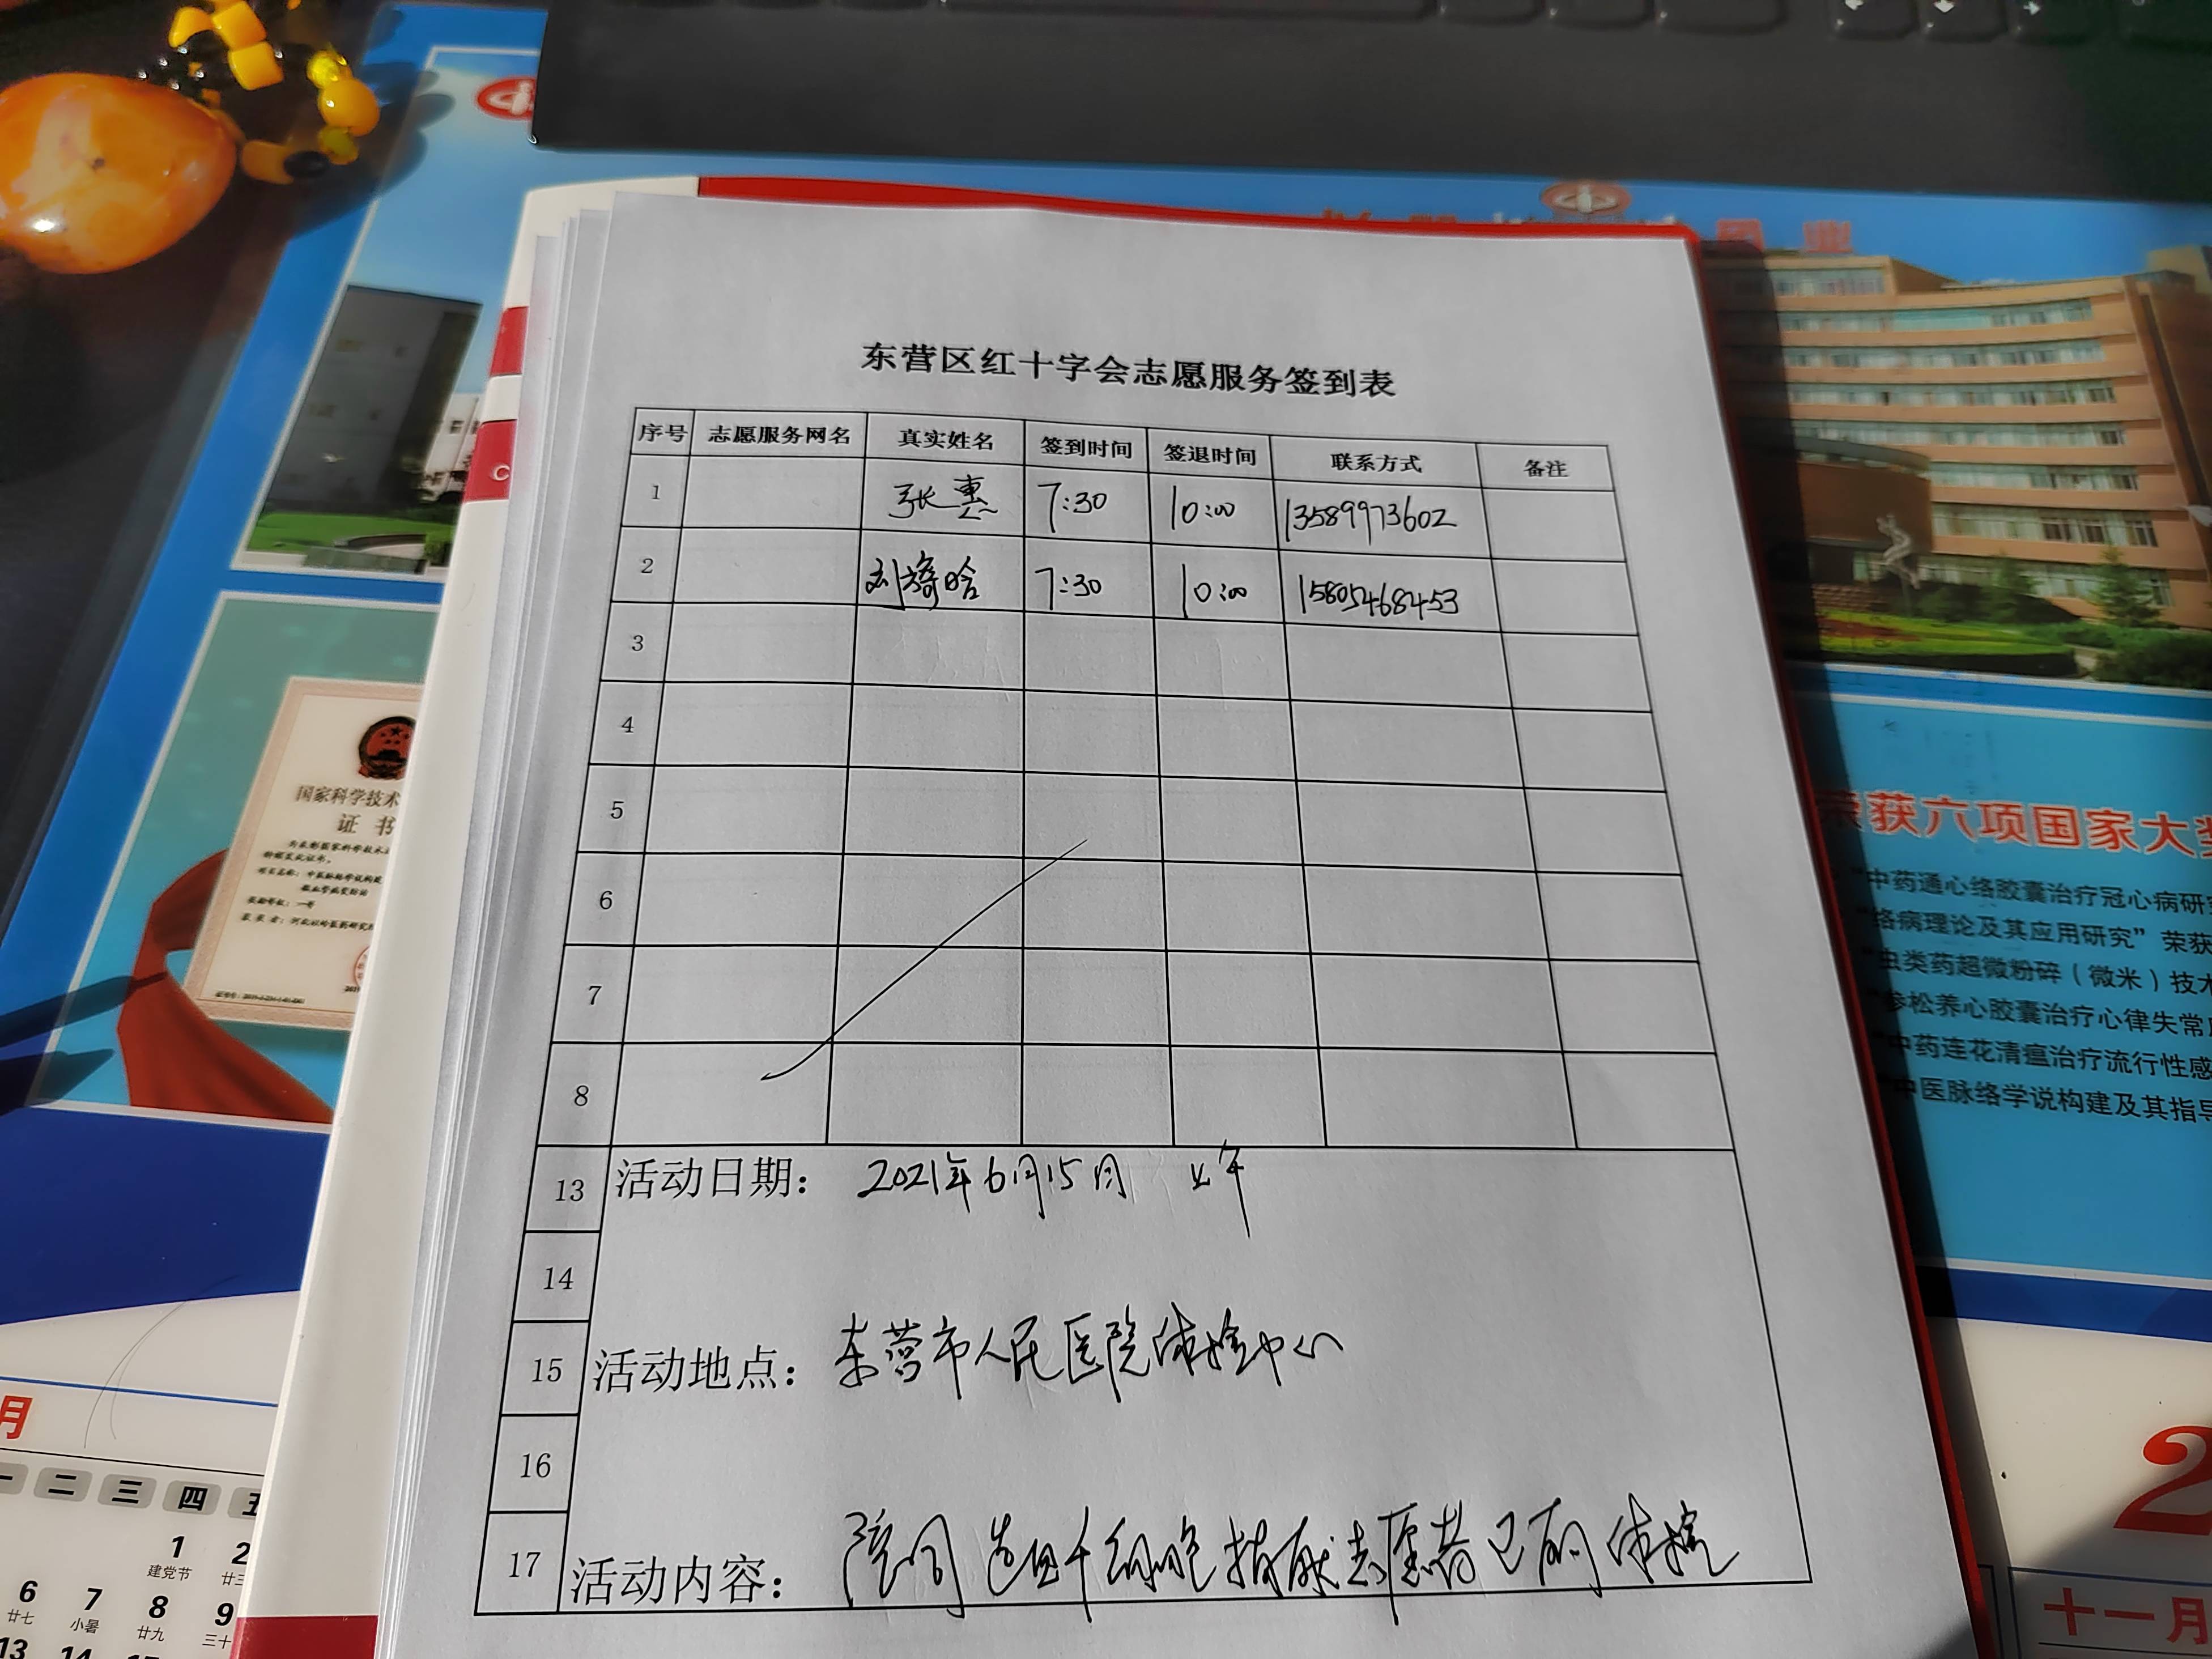 东营区红十字会志愿服务签到表
序号 志愿服务网名 真实姓名 签到时间 签退时间 联系方式 备注
1 张惠 7:30 10:00 13589973602
2 刘 晗 7:30 10:00 15805468453
3
4
5
6
7
8
13 活动日期: 2021年6月15日 上午
14
15 活动地点: 东营市人民医院体检中心
16
17 活动内容: 陪同造血干细胞捐献志愿者 体检
国家科学技术
证书
荣获六项国家大奖
“中药通心络胶囊治疗冠心病研究
“络病理论及其应用研究”荣获
“虫类药超微粉碎(微米)技术
“参松养心胶囊治疗心律失常
“中药连花清瘟治疗流行性感
“中医脉络学说构建及其指导
月
一 二 三 四 五
1 2
建党节 廿三
6 7 8 9
廿七 小暑 廿九 三十
13 14
2
十一月